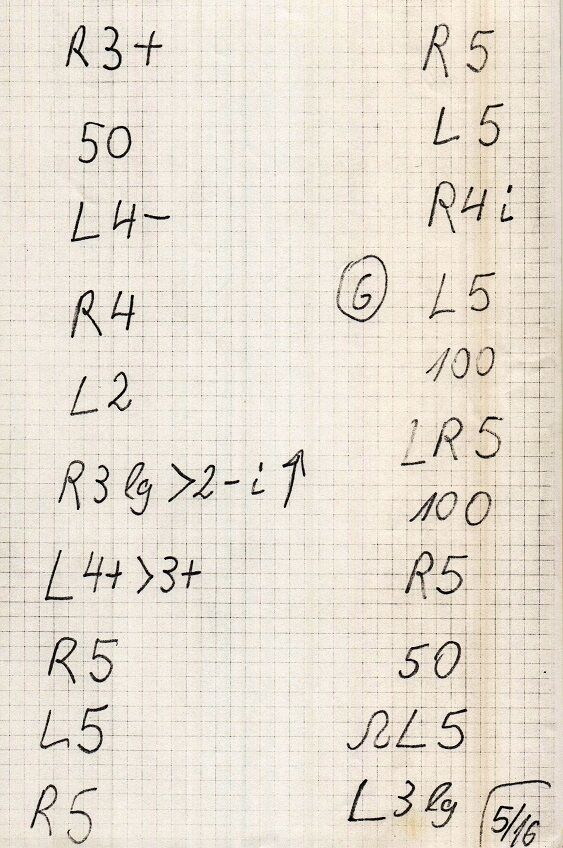 R3+
50
L4-
R4
L2
R3 lg >2-i↑
L4+ >3+
R5
L5
R5
R5
L5
R4i
6 L5
100
LR5
100
R5
50
L5
L3 lg
5/16